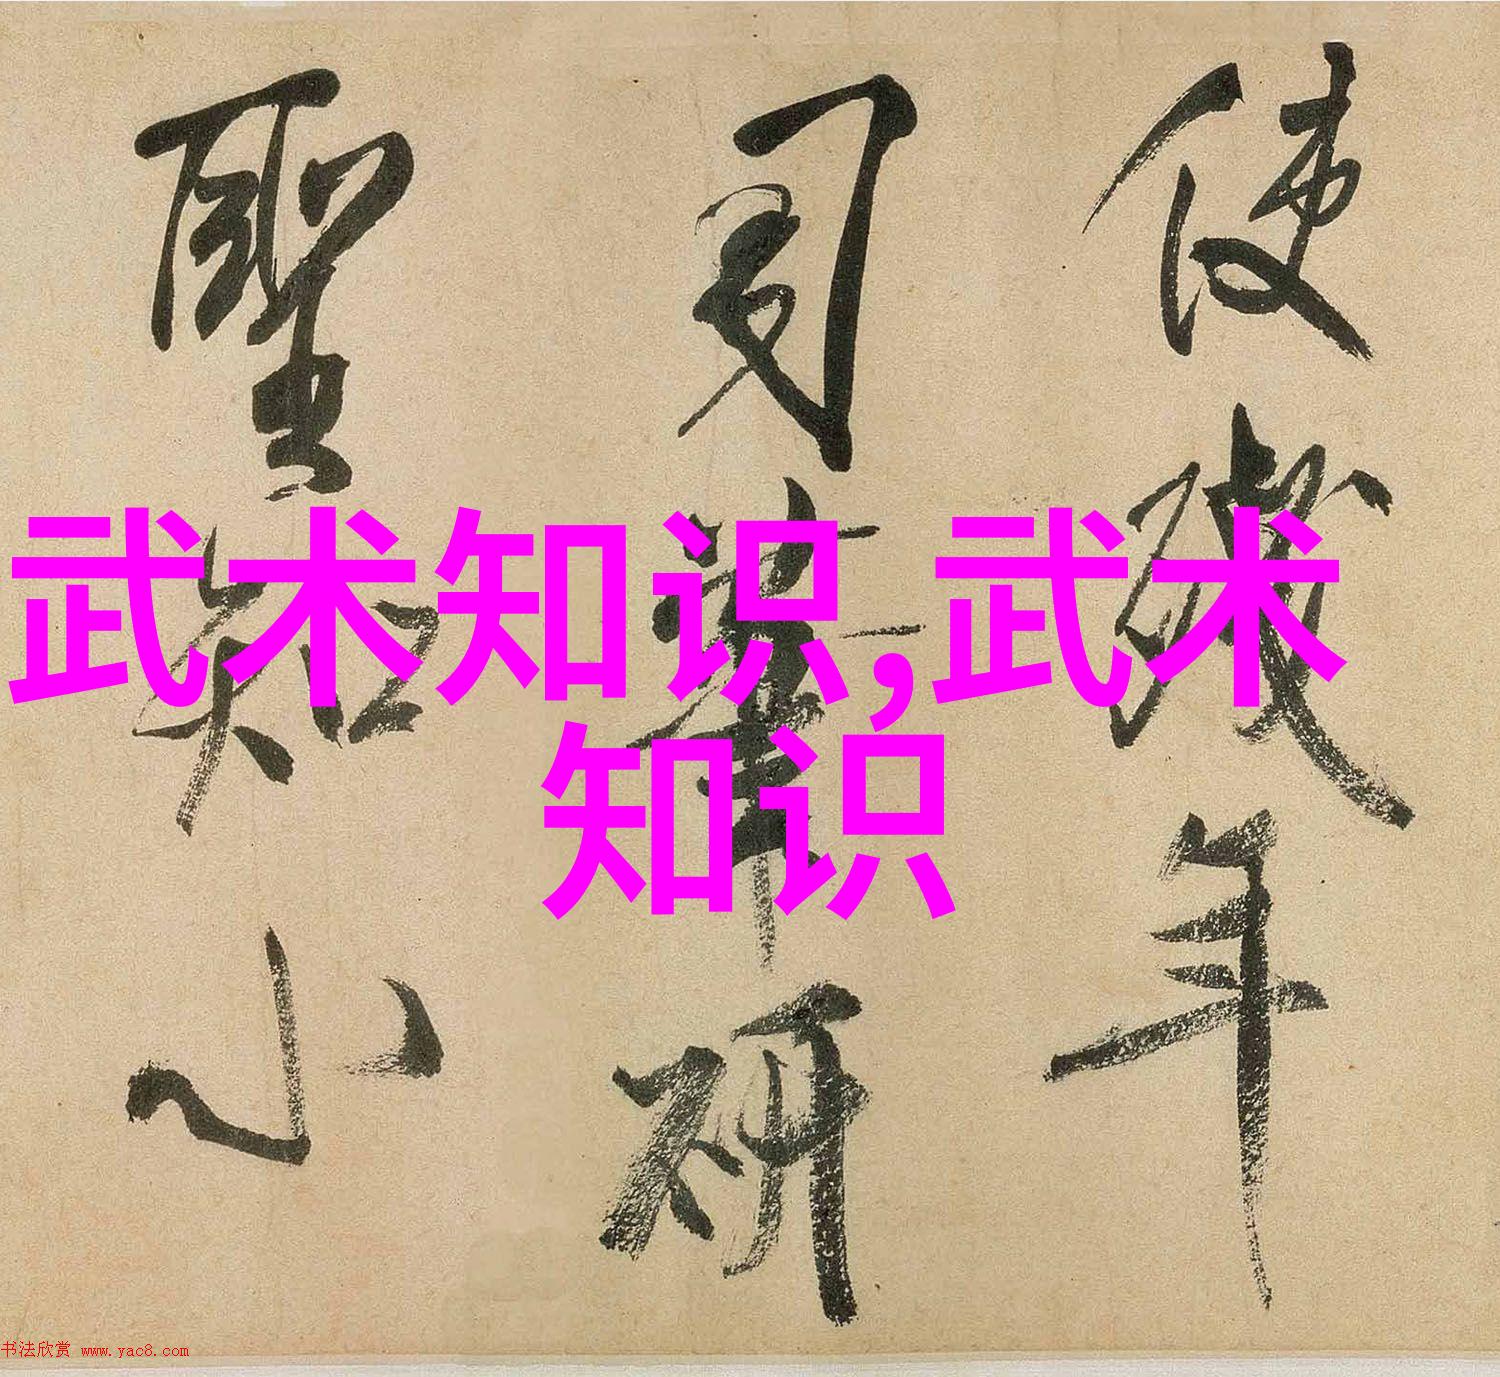 使殘年
司筆研
聖知小
武术知识,武术
知识
书法欣赏 www.yac8.com